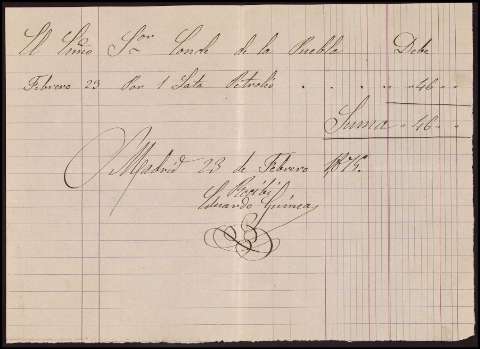 El Exmo Sor Conde de la Puebla Debe
Febrero 23 Por 1 Lata Petroleo . . . . „ 46 „ „
Suma „ 46 „ „
Madrid 23 de Febrero 1875.
Recibí
Eduardo Guinea